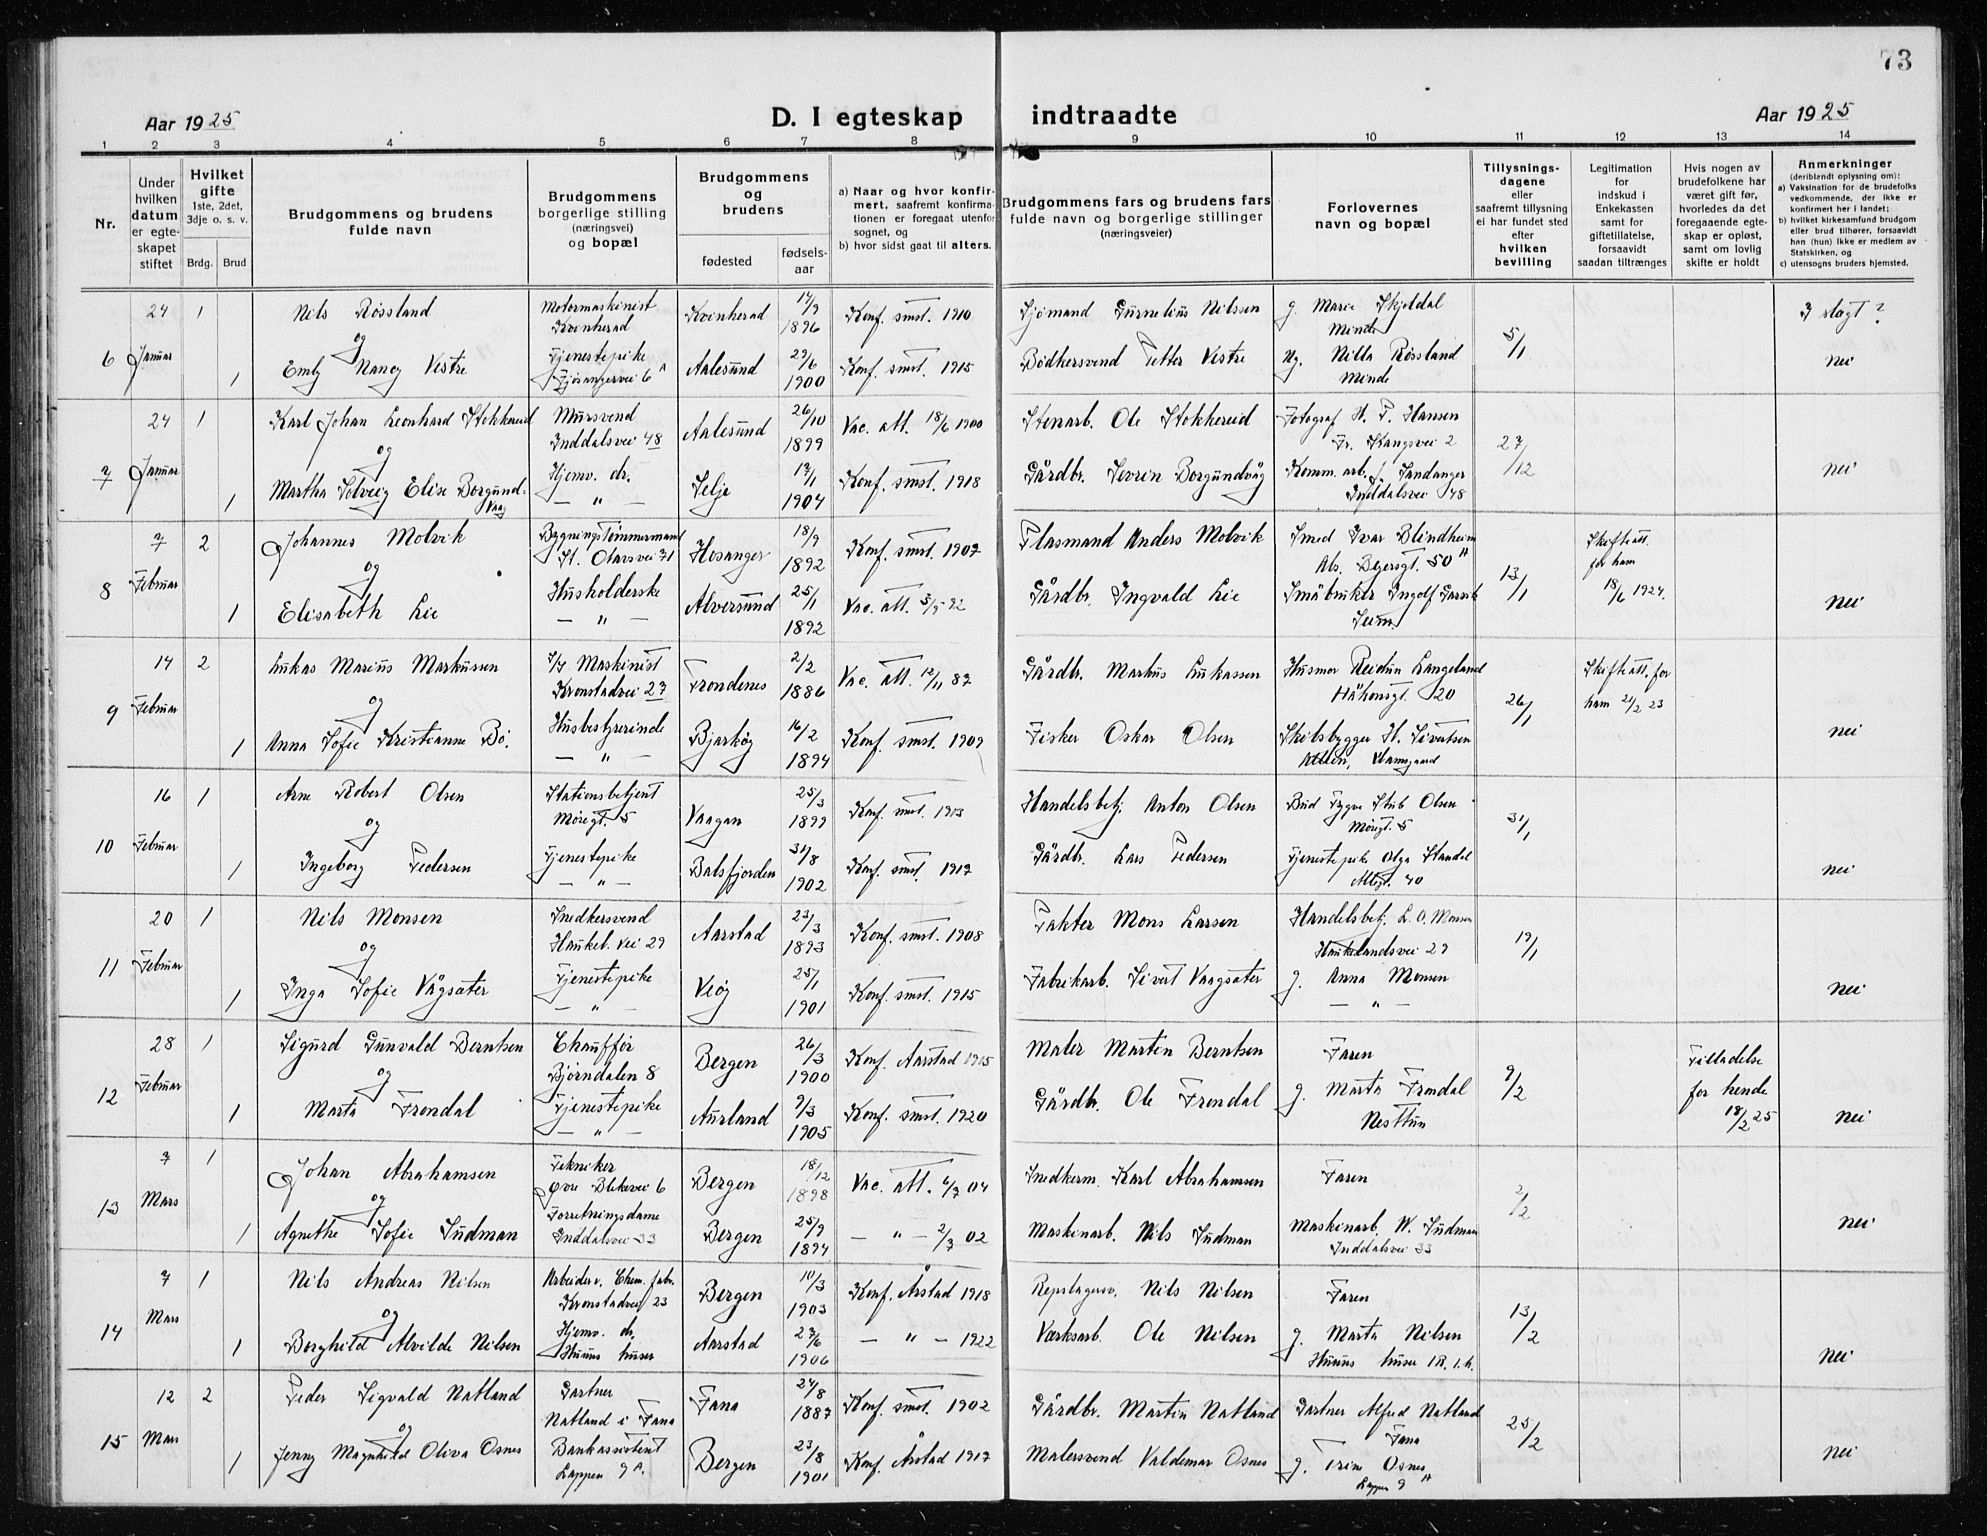 73
Aar 1925
D. I egteskap indtraadte
Aar 1925
1 2 3 4 5 6 7 8 9 10 11 12 13 14
Nr.
Under hvilken datum er egteskapet stiftet
Hvilket gifte 1ste, 2det, 3dje o. s. v.
Brdg. Brud
Brudgommens og brudens fulde navn
Brudgommens borgerlige stilling (næringsvei) og bopæl
Brudgommens og brudens
fødested
fødselsaar
a) Naar og hvor konfirmert, saafremt konfirmationen er foregaat utenfor sognet, og
b) hvor sidst gaat til alters.
Brudgommens fars og brudens fars fulde navn og borgerlige stillinger (næringsveier)
Forlovernes navn og bopæl
Tillysningsdagene eller saafremt tillysning ei har fundet sted efter hvilken bevilling
Legitimation for indskud i Enkekassen samt for giftetillatelse, forsaavidt saadan tiltrænges
Hvis nogen av brudefolkene har været gift før, hvorledes da det foregaaende egteskap er opløst, samt om lovlig skifte er holdt
Anmerkninger (deriblendt oplysning om):
a) Vaksination for de brudefolks vedkommende, der ikke er konfirmert her i landet;
b) hvilket kirkesamfund brudgom eller brud tilhører, forsaavidt han (hun) ikke er medlem av Statskirken, og
c) utensogns bruders hjemsted.
6 24 Januar 1 Nils Røssland Motormaskinist Kvinherad Kvinherad 14/9 1896 Konf. smst. 1910 Sjømand Gurnelius Nilssen g. Marie Skjoldal Minde 5/1 I slagt?
og
1 Emly Nancy Vestre Tjenestepike Fjøsangervei 6 A Aalesund 29/6 1900 Konf. smst. 1915 Bødkersvend Petter Vestre Ug. Nilla Røssland Minde nei
7 24 Januar 1 Karl Johan Leonhard Stokkereid Mursvend Inddalsvei 48 Aalesund 26/10 1899 Vac. att. 18/6 1900 Stenarb. Ole Stokkereid Fotograf H. P. Hansen Fr. Stangsvei 2 27/12
og
1 Martha Solveig Elise Borgundvaag Hjemv. dr. — " — Selje 17/1 1904 Konf. smst. 1918 Gårdbr. Severin Borgundvåg Komm. arb. J. Sandanger Inddalsvei 48 nei
8 7 Februar 2 Johannes Molvik Bygningstømmermand St. Olavsvei 71 Hosanger 18/9 1892 Konf. smst. 1907 Plasmand Anders Molvik Smed Ivar Blindheim Abs. Beyersgt. 50 A 13/1 Skifteatt. for ham 18/6 1924.
og
1 Elisabeth Lie Husholderske — " — Alversund 25/1 1892 Vac. att. 5/9 92 Gårdbr. Ingvald Lie Småbruker Ingolf Seim nei
9 14 Februar 2 Lukas Marius Markussen Maskinist Kronstadvei 27 Trondenes 2/2 1886 Vac. att. 12/11 87 Gårdbr. Markus Lukassen Husmor Reidun Langeland Håkonsgt. 20 26/1 Skifteatt. for ham 21/2 23
og
1 Anna Sofie Kristianne Bö. Husbestyrerinde — " — Bjarköy 16/2 1894 Konf. smst. 1909 Fisker Oskar Olsen Skibsbygger H. Sivertsen nei
10 16 Februar 1 Arne Robert Olsen Stationsbetjent Møregt. 5 Vaagan 25/3 1899 Konf. smst. 1913 Handelsbetj. Anton Olsen Bud Tygve Stub Olsen Møregt. 5 31/1
og
1 Ingeborg Pedersen Tjenestepike — " — Balsfjorden 31/8 1902 Konf. smst. 1917 Gårdbr. Lars Pedersen Tjenestepike Olga Standal 40 nei
11 20 Februar 1 Nils Monsen Snedkersvend Haukel. vei 29 Aarstad 23/3 1893 Konf. smst. 1908 Fakter Mons Larsen Handelsbetj. L. O. Monsen Haukelandsvei 29 19/1
og
1 Inga Sofie Vågsæter Tjenestepike — " — Veöy 25/1 1901 Konf. smst. 1915 Fabrikarb. Sivert Vaagsæter g. Anna Monsen — " — nei
12 28 Februar 1 Sigurd Gunvald Berntsen Chauffør Bjørndalen 8 Bergen 26/3 1900 Konf. Aarstad 1915 Maler Martin Berntsen Faren 9/2 Tilladelse for hende 18/2 25
og
1 Marta Frondal Tjenestepike — " — Aurland 9/3 1905 Konf. smst. 1920 Gårdbr. Ole Frondal g. Marta Frondal Nesttun nei
13 7 Mars 1 Johan Abrahamsen Tekniker Øvre Blekevei 6 Bergen 18/12 1898 Vac. att. 6/7 04 Snedkerm. Karl Abrahamsen Faren 2/2
og
1 Agnethe Sofie Sudman Forretningsdame Inddalsvei 33 Bergen 25/9 1894 — " — 2/7 02 Maskinarb. Nils Sudman Maskinarb. W. Sudman Inddalsvei 33 nei
14 7 Mars 1 Nils Andreas Nilsen Arbeider v. Chem. fabr. Kronstadvei 23 Bergen 10/3 1903 Konf. Årstad 1918 Repslagersv. Nils Nilsen Faren 13/2
og
1 Borghild Alvilde Nilsen Hjemv. dr. Huuns huser Aarstad 27/6 1906 — " — 1922 Værksarb. Ole Nilsen g. Marta Nilsen Huuns huser nei
15 12 Mars 2 Peder Sigvald Natland Gartner Natland i Fana Fana 24/8 1887 Konf. smst. 1902 Gårdbr. Martin Natland Gartner Alfred Natland Fana 25/2
og
1 Jenny Magnhild Oliva Osnes Bankassistent Lappen 9 A. Bergen 23/8 1901 Konf. Årstad 1917 Malersvend Valdemar Osnes g. Trine Osnes Lappen 9 A nei